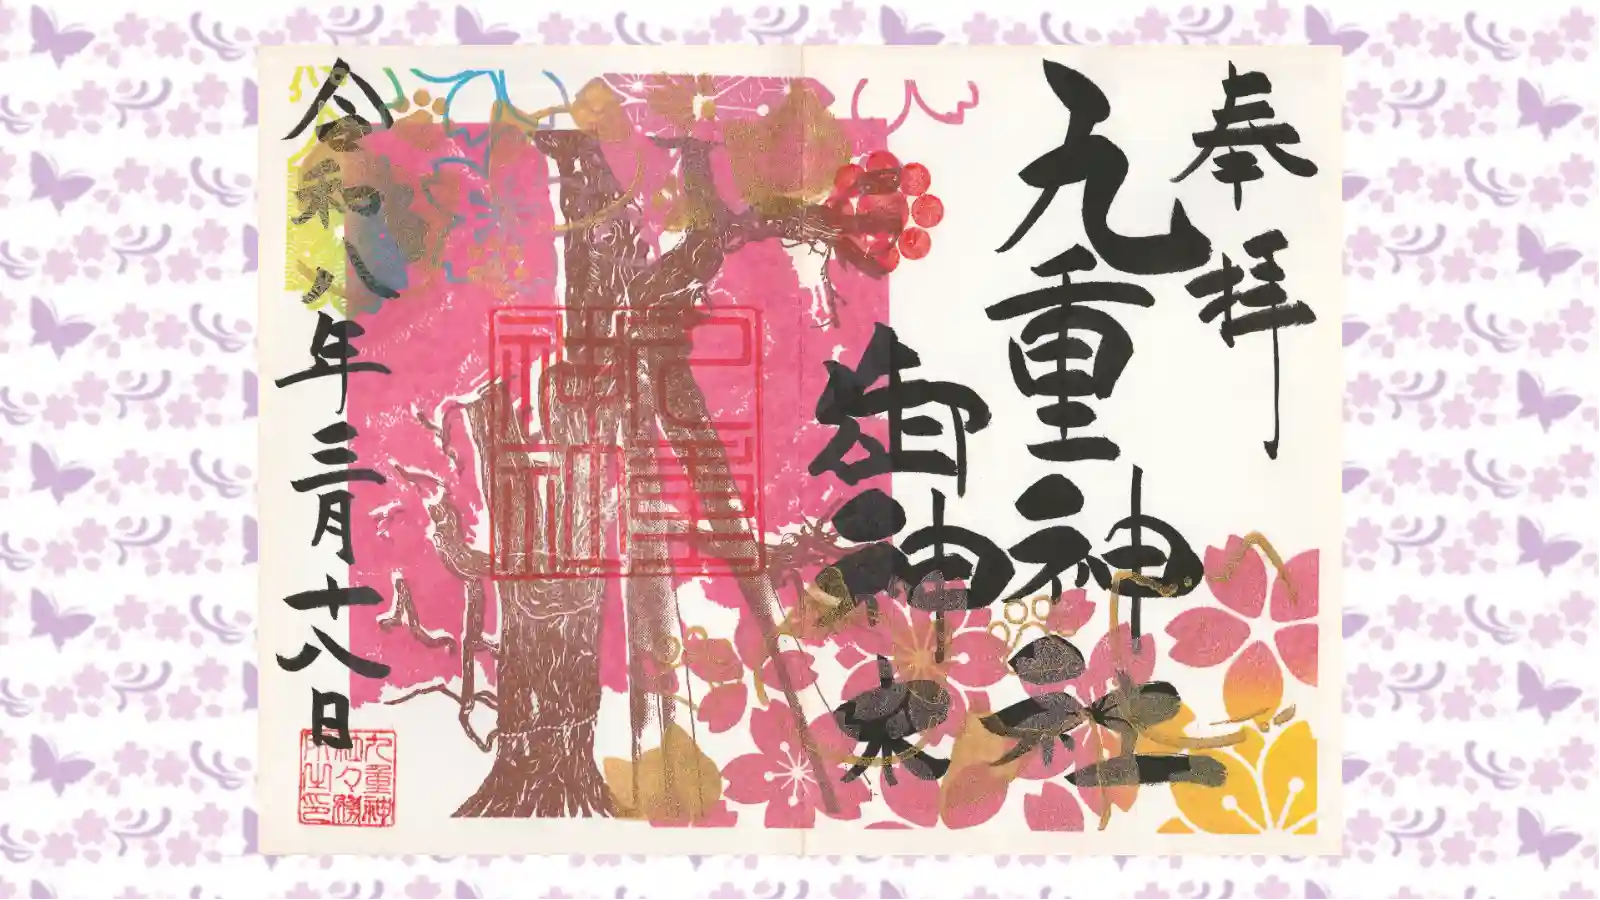 奉拝
九重神社
御神木
令和八年三月十八日
九重神社
九重神
社々務
所之印